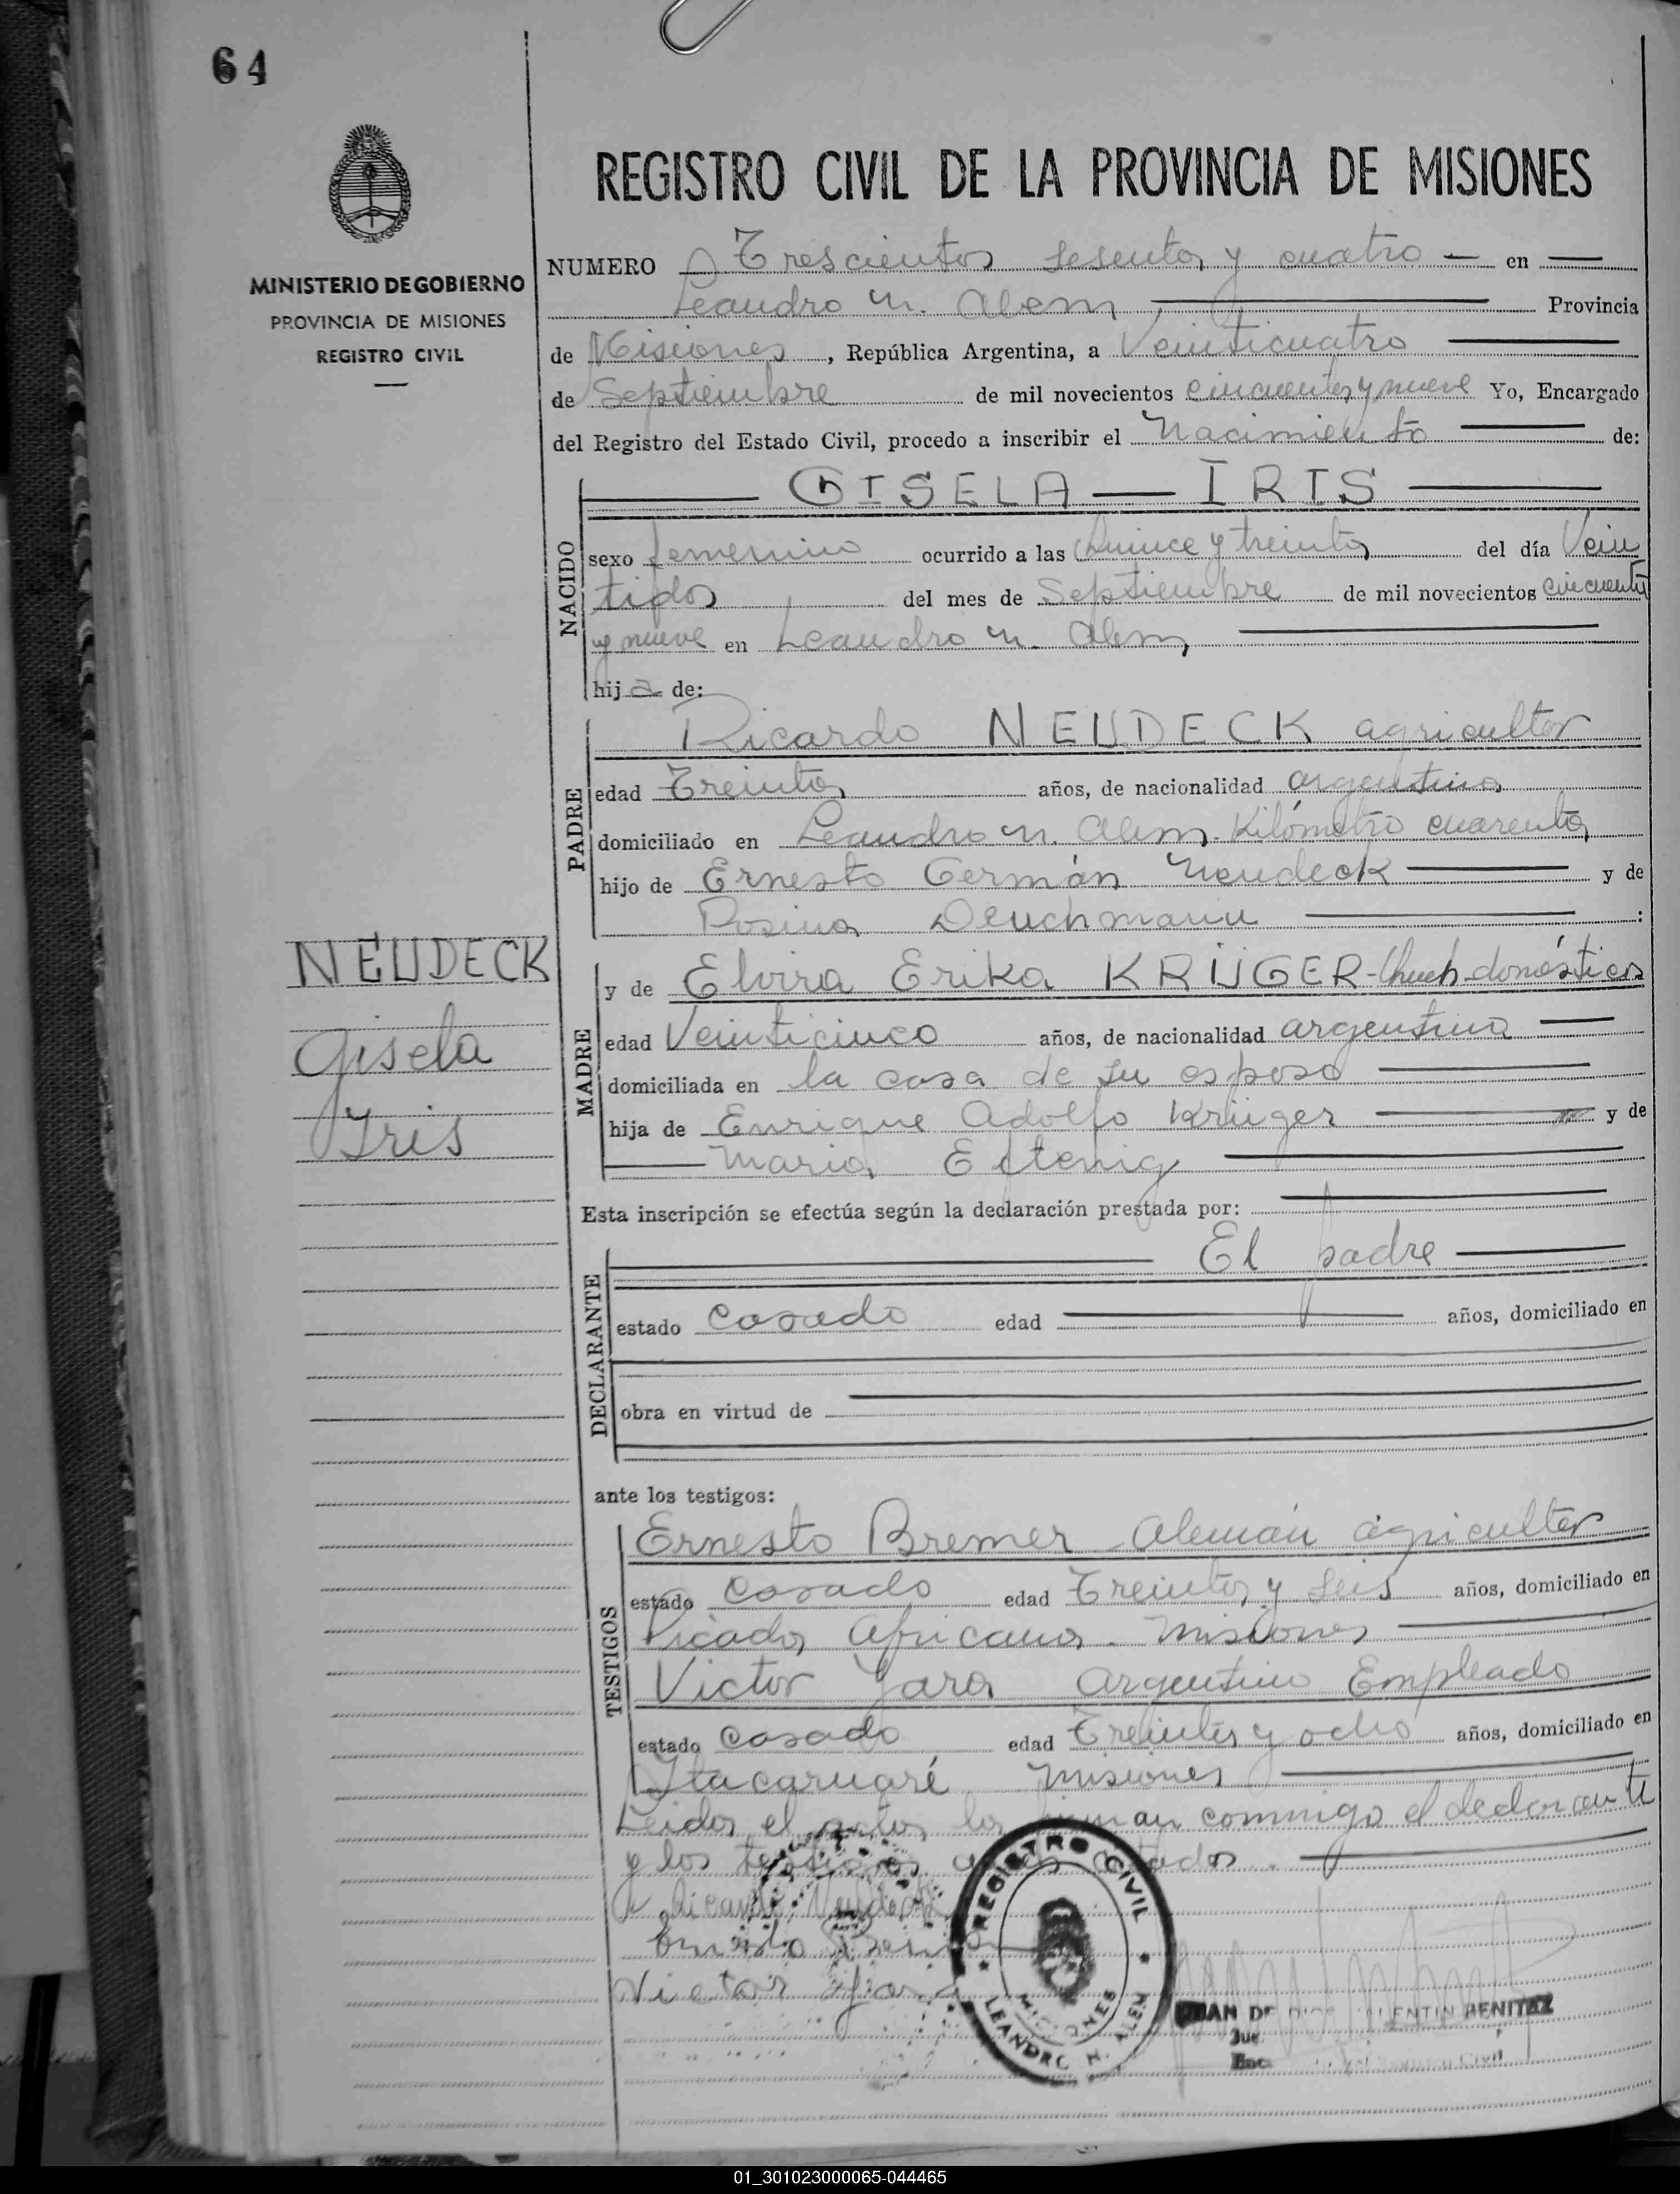 64
MINISTERIO DE GOBIERNO
PROVINCIA DE MISIONES
REGISTRO CIVIL
REGISTRO CIVIL DE LA PROVINCIA DE MISIONES
NUMERO Trescientos sesenta y cuatro — en —
Leandro N. Alem — Provincia
de Misiones, República Argentina, a Veinticuatro —
de Septiembre de mil novecientos cincuenta y nueve Yo, Encargado
del Registro del Estado Civil, procedo a inscribir el Nacimiento — de:
NACIDO
— GISELA — IRIS —
sexo femenino ocurrido a las Quince y treinta del día Vein
tidos del mes de Septiembre de mil novecientos cincuenta
y nueve en Leandro N. Alem —
hija de:
PADRE
Ricardo NEUDECK agricultor
edad Treinta años, de nacionalidad argentina
domiciliado en Leandro N. Alem. Kilómetro cuarenta
hijo de Ernesto Germán Neudeck — y de
Rosina Deuchmann — :
NEUDECK
Gisela
Iris
MADRE
y de Elvira Erika KRÜGER - domésticos
edad Veinticinco años, de nacionalidad argentina —
domiciliada en la casa de su esposo —
hija de Enrique Adolfo Krüger — y de
— Maria —
Esta inscripción se efectúa según la declaración prestada por: —
DECLARANTE
— El padre —
estado casado edad — años, domiciliado en
obra en virtud de —
ante los testigos:
TESTIGOS
Ernesto Bremer - Alemán agricultor
estado casado edad Treinta y seis años, domiciliado en
Picada Africana. Misiones —
Victor Jara Argentino Empleado
estado casado edad Treinta y ocho años, domiciliado en
Itacaruaré Misiones —
Leida el acta la firman conmigo el declarante
y los testigos citados. —
Ricardo Neudeck
Ernesto Bremer
Victor Jara
REGISTRO CIVIL
MISIONES
LEANDRO N. ALEM
JUAN DE DIOS VALENTIN BENITEZ
01_301023000065-044465